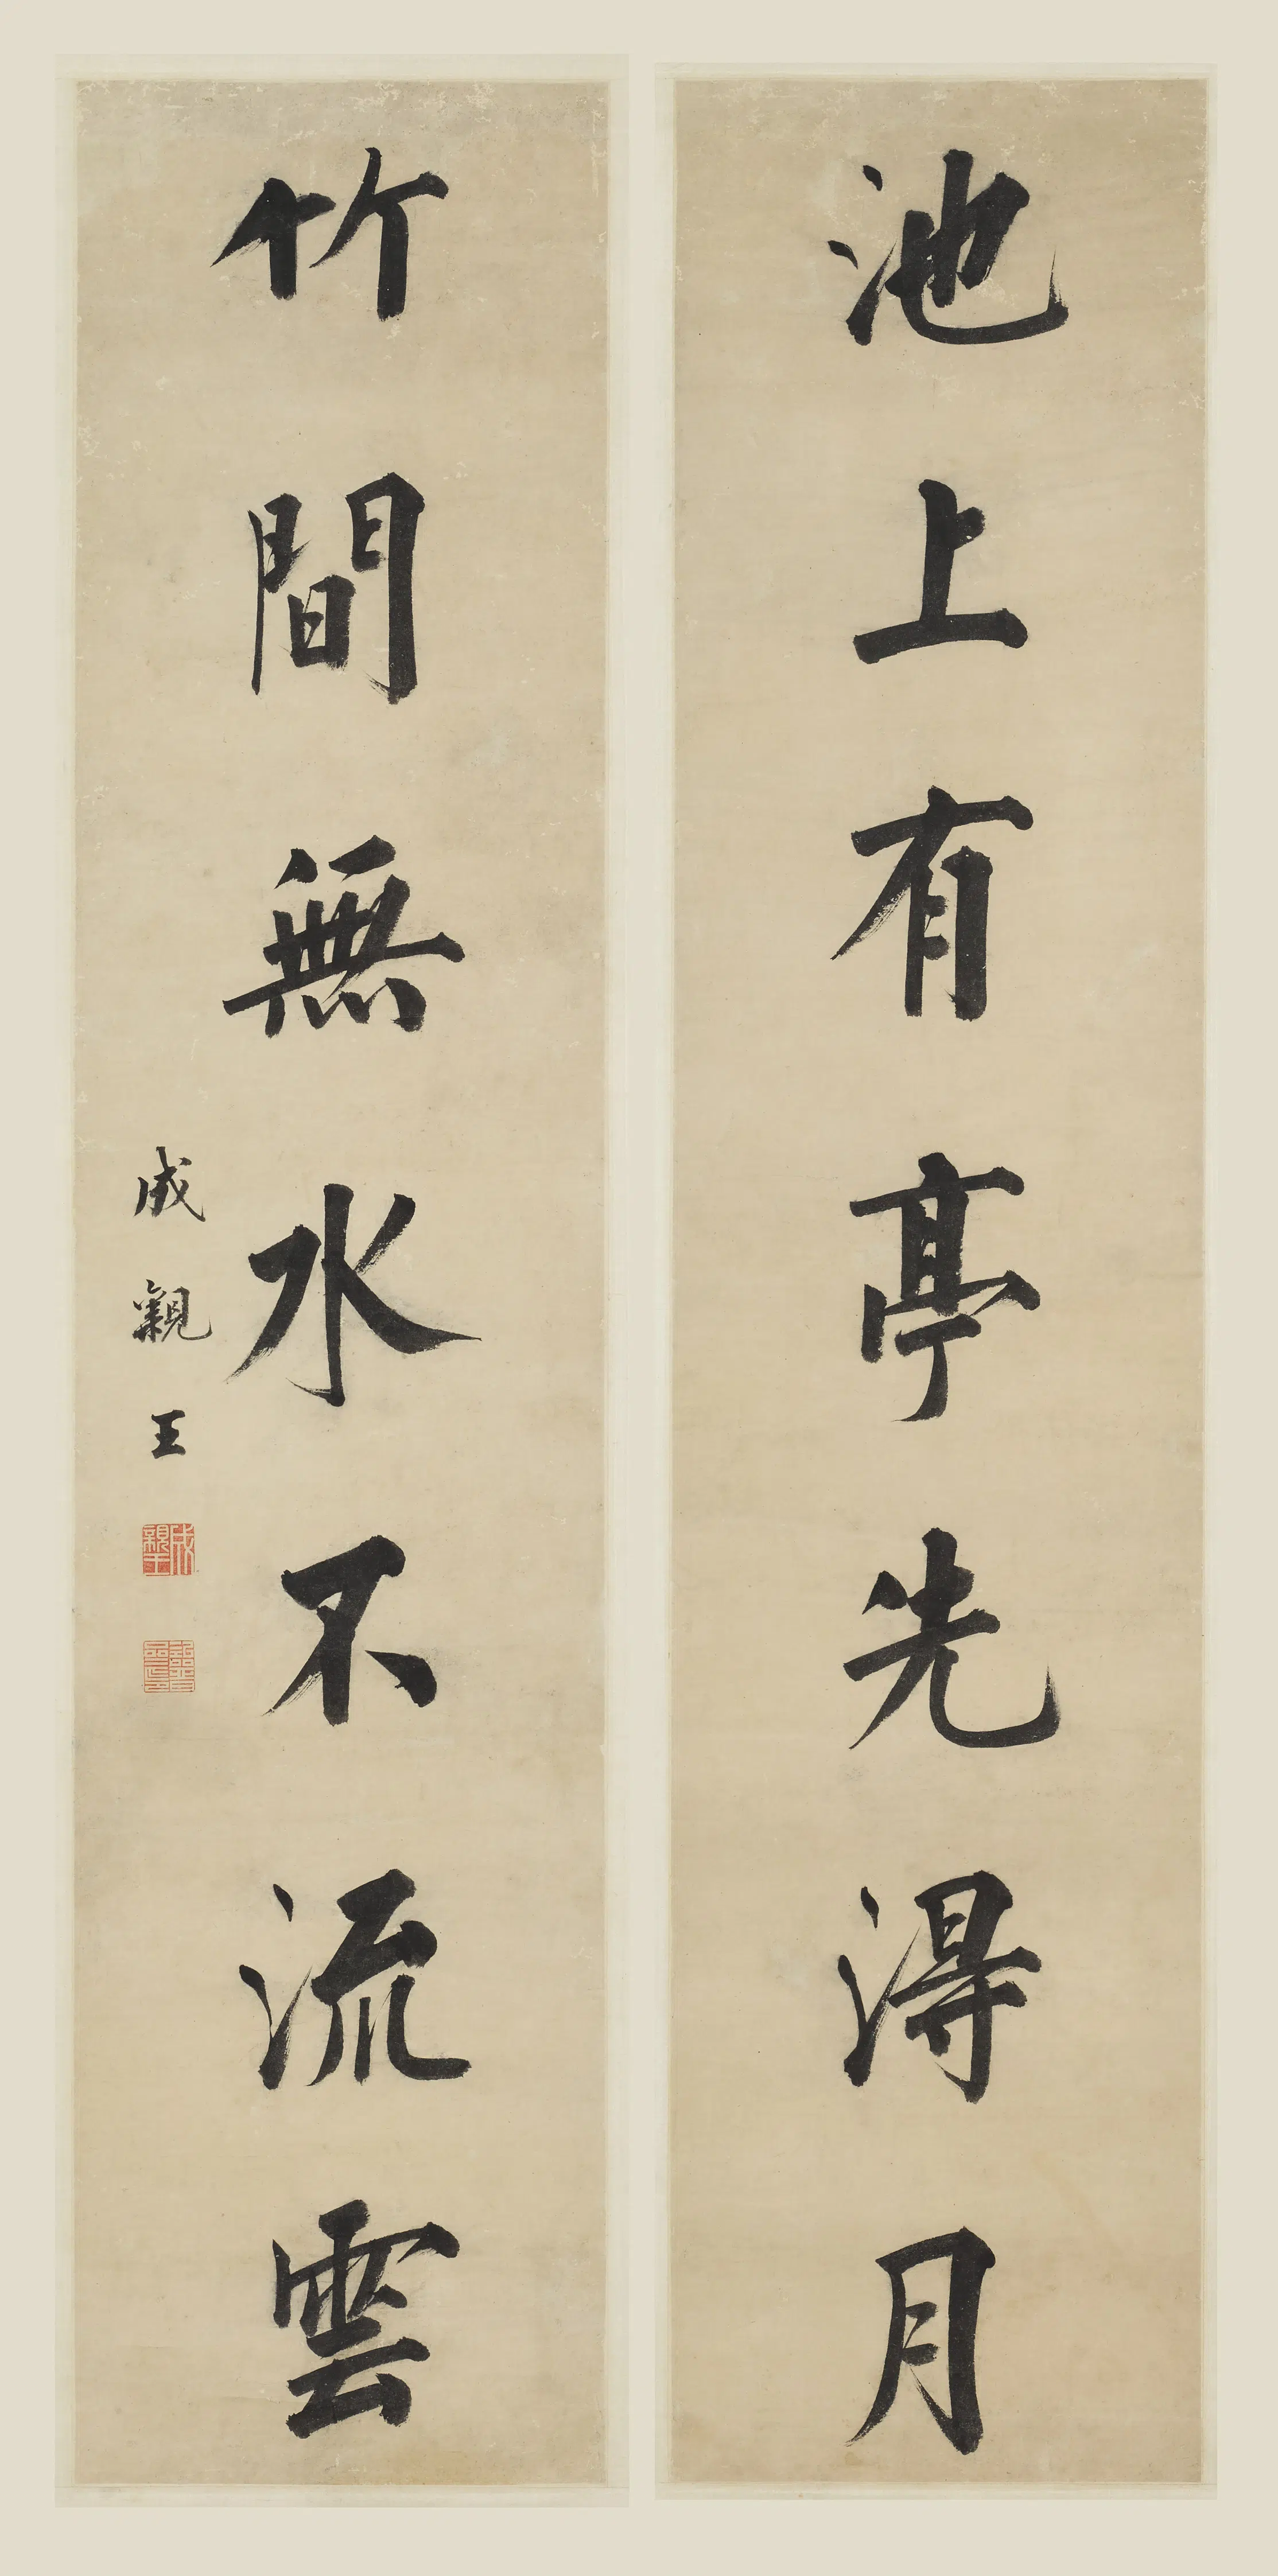 池上有亭先得月
竹間無水不流雲
成親王
成親王